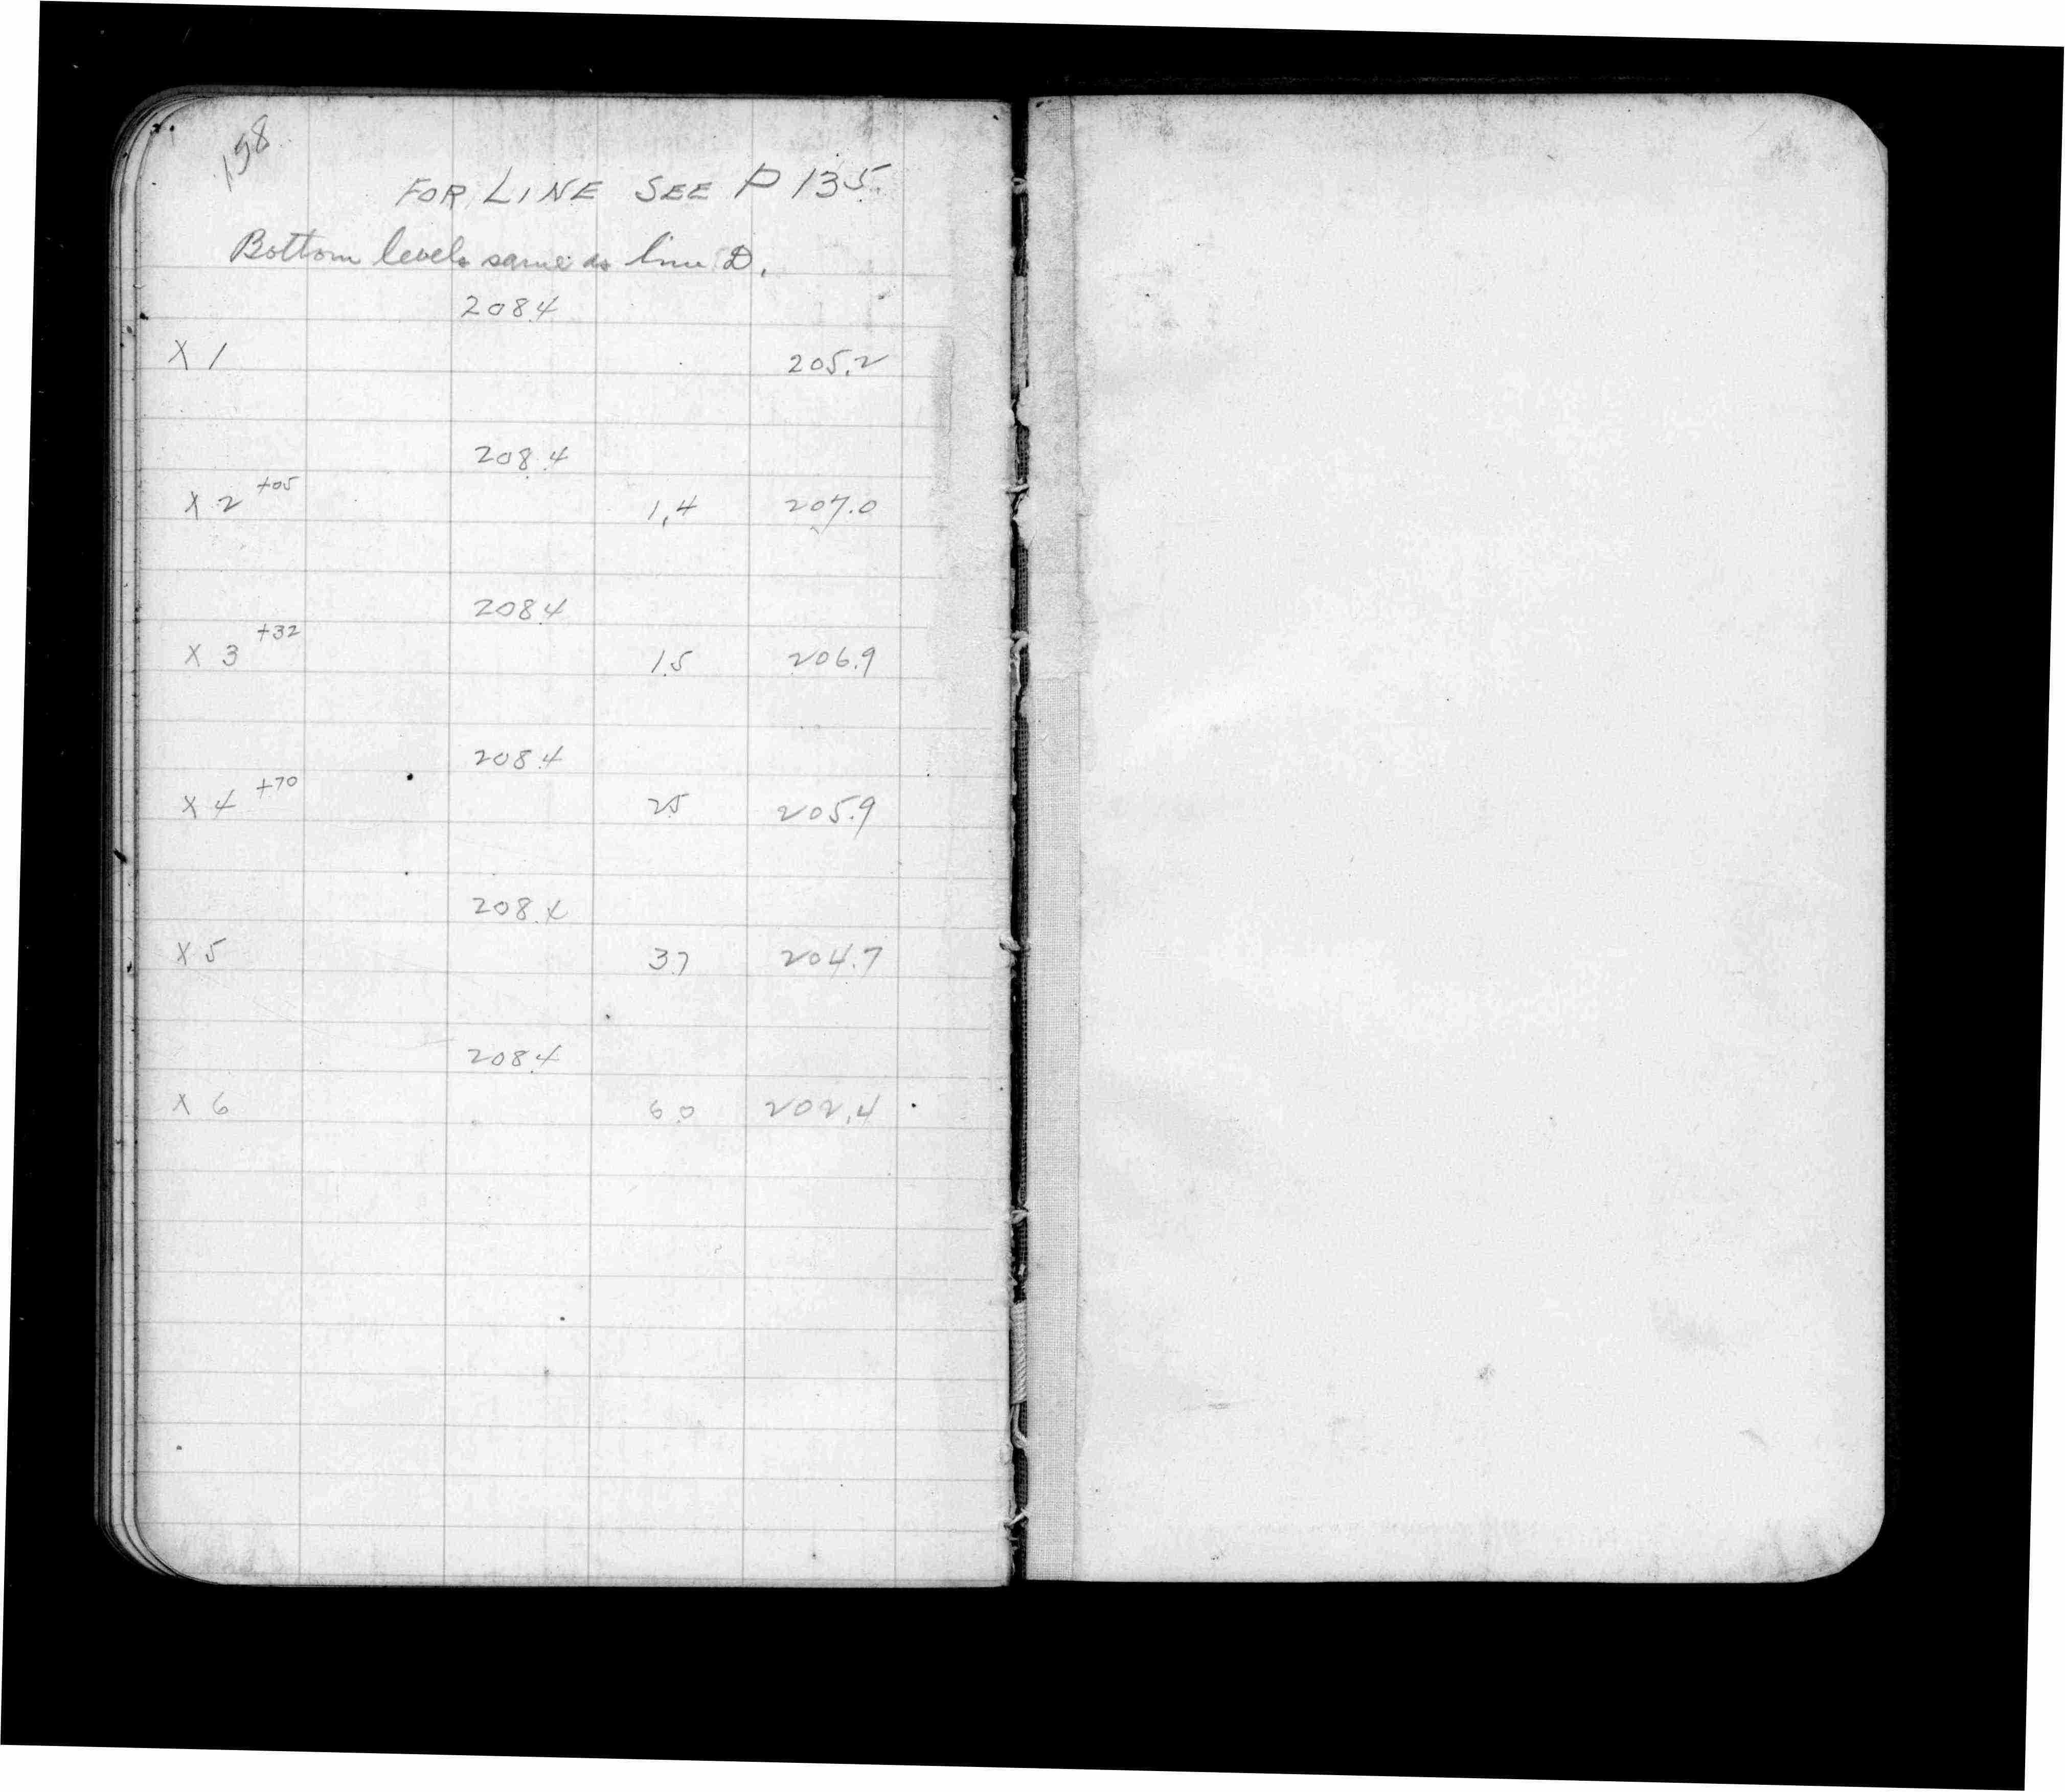 158
FOR LINE SEE P 135
Bottom levels same as line D.
208.4
X 1 205.2
208.4
X 2 +05 1.4 207.0
208.4
X 3 +32 1.5 206.9
208.4
X 4 +70 2.5 205.9
208.4
X 5 3.7 204.7
208.4
X 6 6.0 202.4